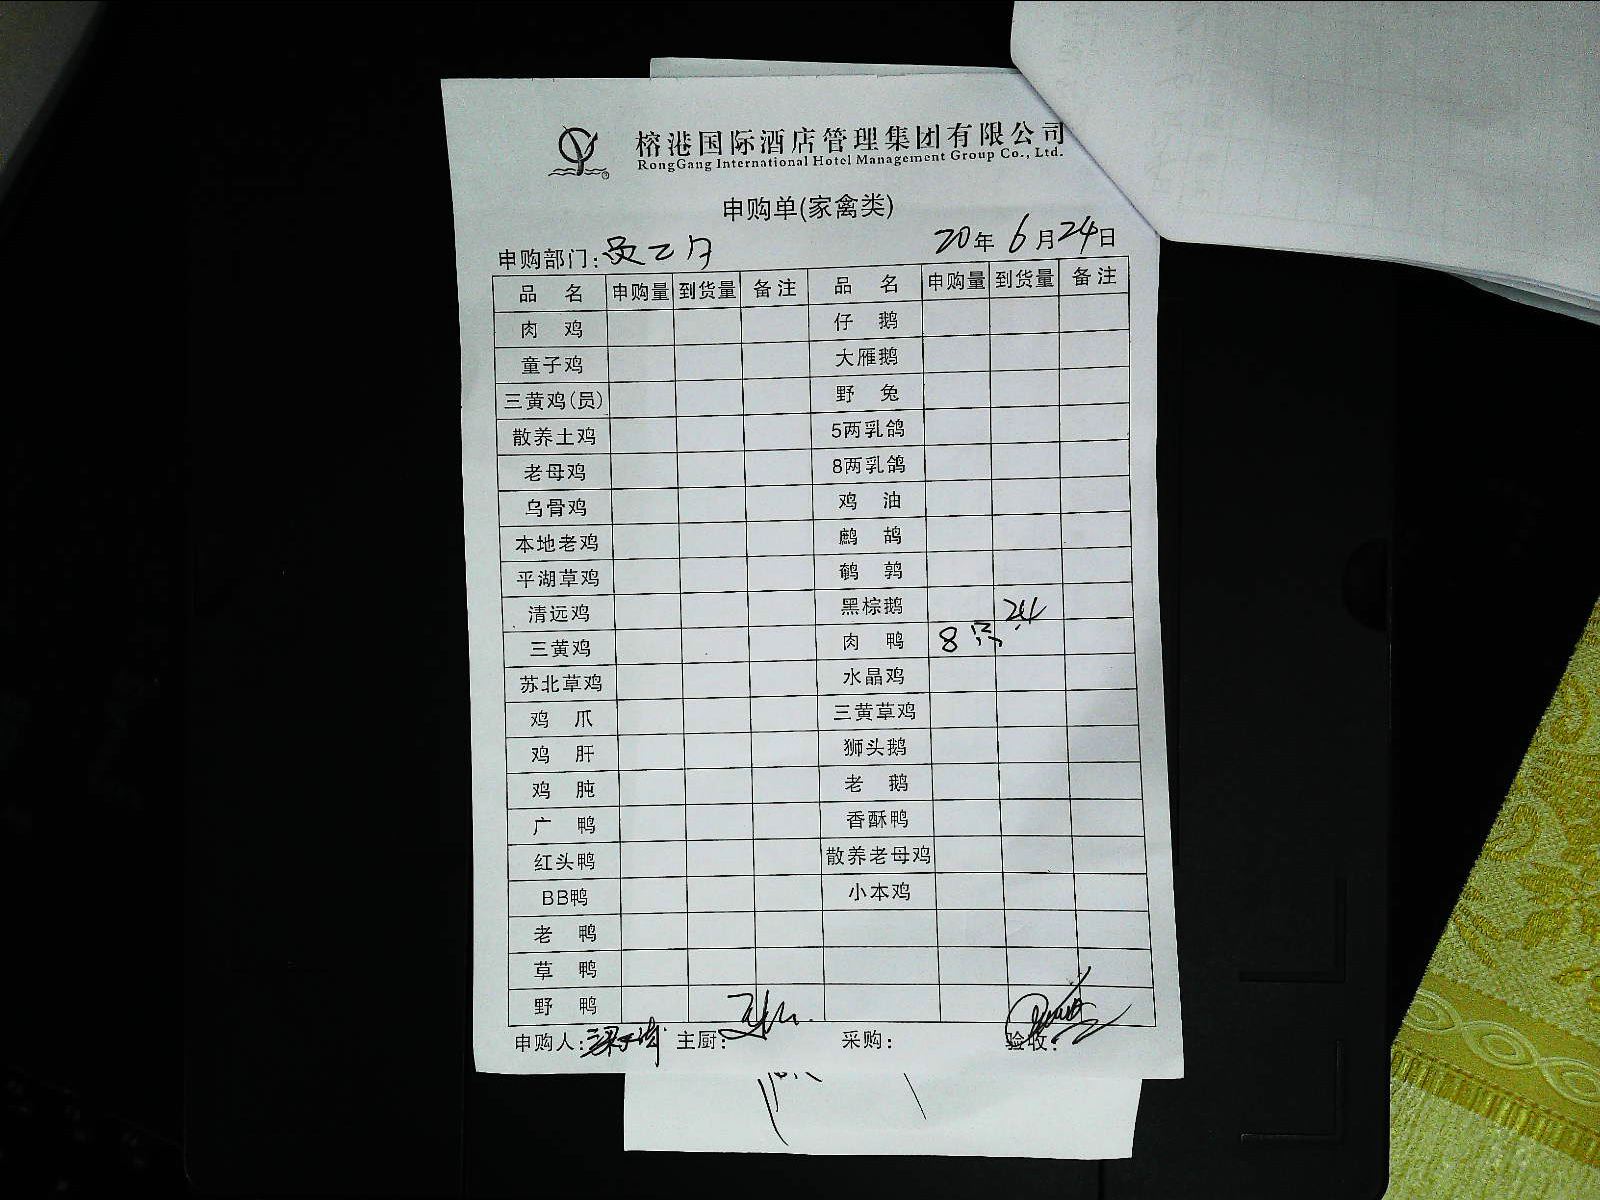 榕港国际酒店管理集团有限公司
RongGang International Hotel Management Group Co., Ltd.
申购单(家禽类)
申购部门: 20年6月24日
品 名 申购量 到货量 备注 品 名 申购量 到货量 备注
肉 鸡 仔 鹅
童子鸡 大雁鹅
三黄鸡(员) 野 兔
散养土鸡 5两乳鸽
老母鸡 8两乳鸽
乌骨鸡 鸡 油
本地老鸡 鹧 鸪
平湖草鸡 鹌 鹑
清远鸡 黑棕鹅
三黄鸡 肉 鸭 8只 24
苏北草鸡 水晶鸡
鸡 爪 三黄草鸡
鸡 肝 狮头鹅
鸡 肫 老 鹅
广 鸭 香酥鸭
红头鸭 散养老母鸡
BB鸭 小本鸡
老 鸭
草 鸭
野 鸭
申购人: 主厨: 采购: 验收: